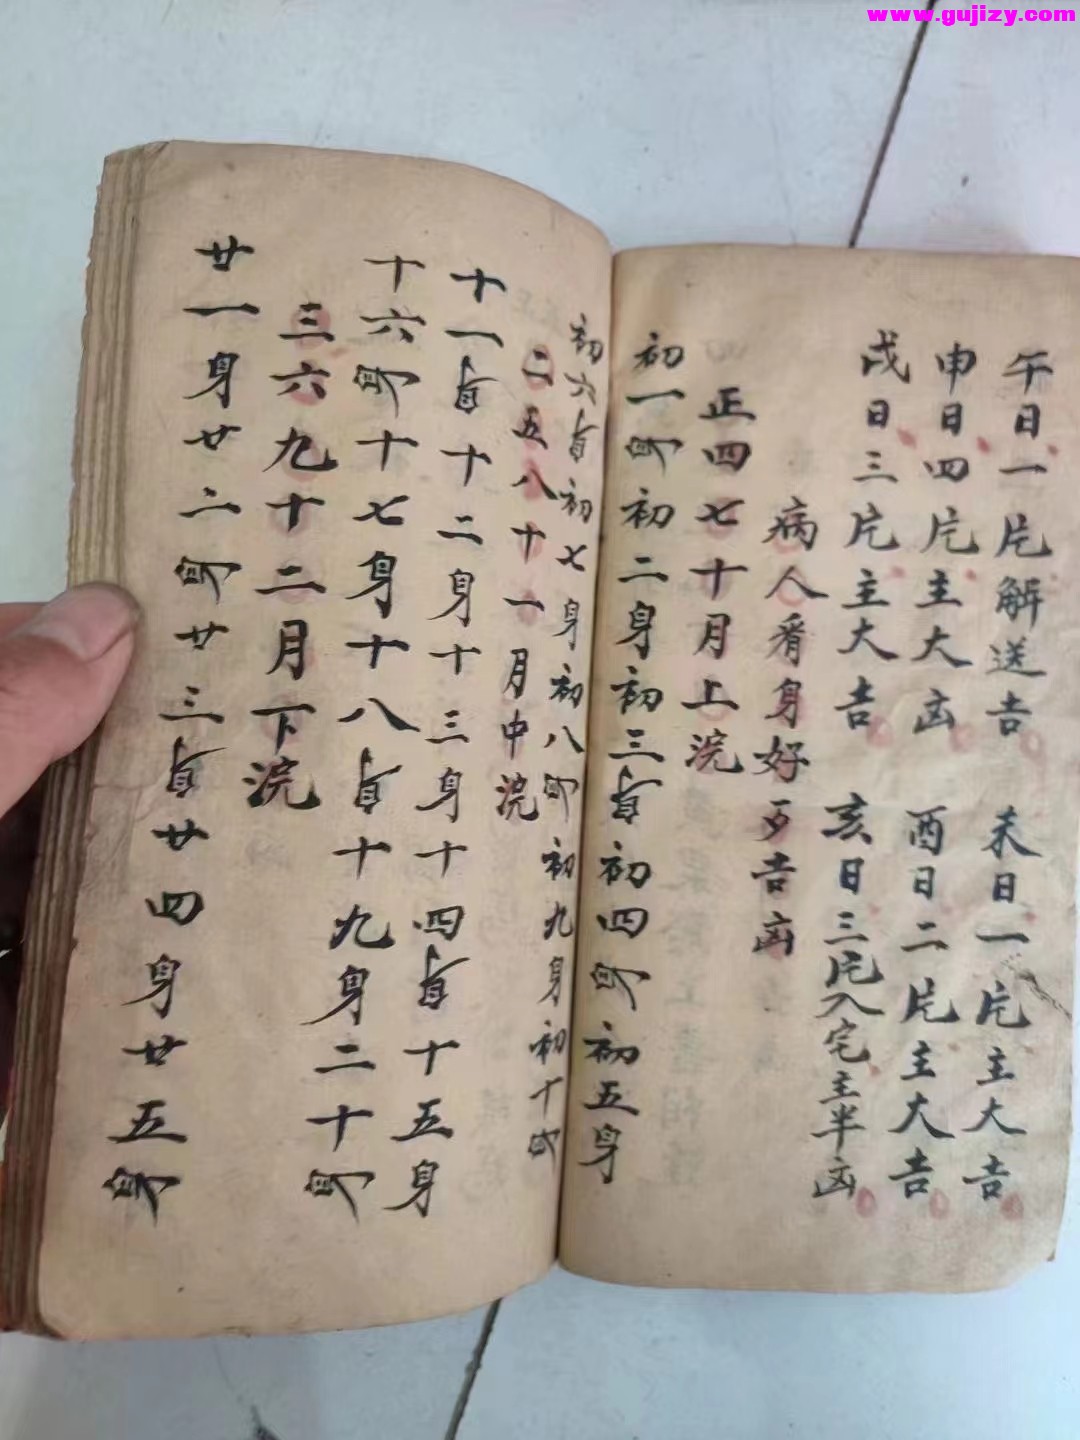 www.gujizy.com
午日一片解送吉 未日一片主大吉
申日四片主大凶 酉日二片主大吉
戌日三片主大吉 亥日三片入宅主半凶
病人看身好歹吉凶
正四七十月上浣
初一 初二身初三 初四 初五身
初六 初七身初八 初九身初十
二五八十一月中浣
十一 十二身十三身十四 十五身
十六 十七身十八 十九身二十
三六九十二月下浣
廿一身廿二 廿三 廿四身廿五